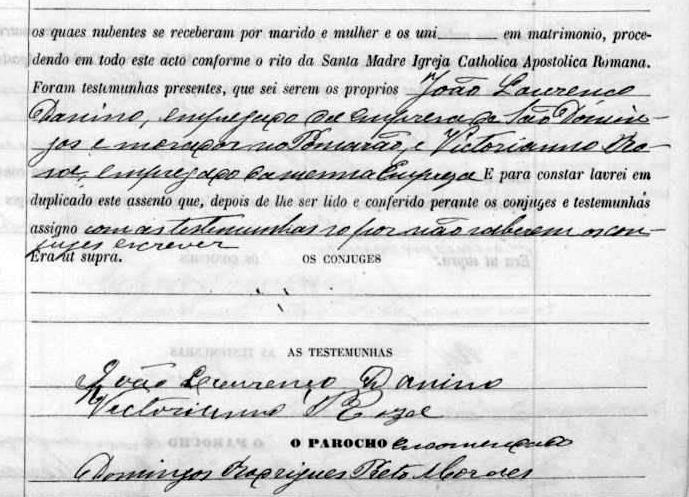 os quaes nubentes se receberam por marido e mulher e os uni____ __ em matrimonio, proce-
dendo em todo este acto conforme o rito da Santa Madre Igreja Catholica Apostolica Romana.
Foram testemunhas presentes, que sei serem os proprios João Lourenço
Danino, empregado da empreza de São Domin-
gos e morador no Pomarão, e Victorianno Ro-
sa, empregado da mesma Empreza E para constar lavrei em
duplicado este assento que, depois de lhe ser lido e conferido perante os conjuges e testemunhas
assigno com as testemunhas so por não saberem os con-
juges escrever
Era ut supra. OS CONJUGES
AS TESTEMUNHAS
João Lourenço Danino
Victorianno Roza
O PAROCHO encommendado
Domingos Rodrigues Moraes